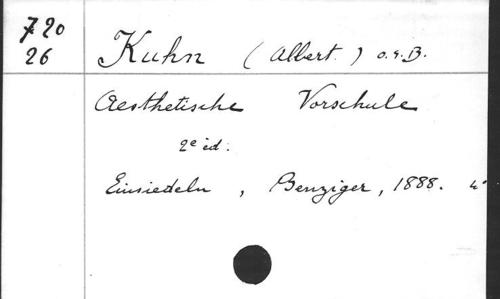 720
26
Kuhn (Albert.) O.S.B.
Aesthetische Vorschule
2e éd.
Einsiedeln, Benziger, 1888. 4°